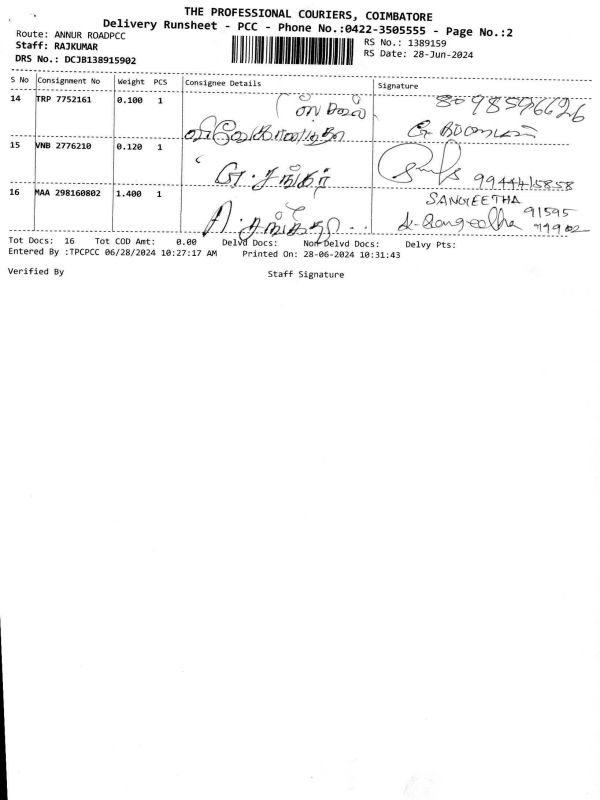 THE PROFESSIONAL COURIERS, COIMBATORE
Delivery Runsheet - PCC - Phone No.:0422-3505555 - Page No.:2
Route: ANNUR ROADPCC
RS No.: 1389159
Staff: RAJKUMAR
RS Date: 28-Jun-2024
DRS No.: DCJB138915902
S No Consignment No Weight PCS Consignee Details Signature
14 TRP 7752161 0.100 1
15 VNB 2776210 0.120 1
9944415858
16 MAA 298160802 1.400 1 SANGEETHA
91595
Tot Docs: 16 Tot COD Amt: 0.00 Delvd Docs: Non Delvd Docs: Delvy Pts:
Entered By :TPCPCC 06/28/2024 10:27:17 AM Printed On: 28-06-2024 10:31:43
Verified By Staff Signature